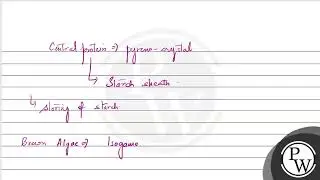 Central protein ⇒ pyreno-crystal
↳ Starch sheath
↳ storing of starch
Brown Algae ⇒ Isogamo
PW